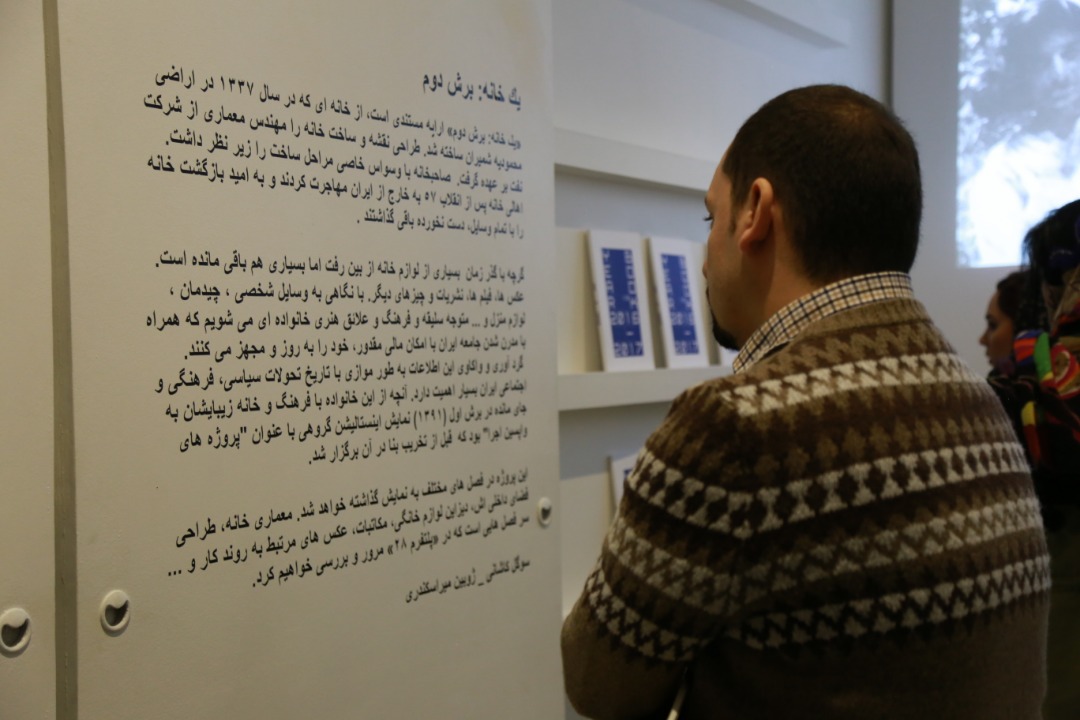 یک خانه: برش دوم
«یک خانه: برش دوم» ارایه مستندی است، از خانه ای که در سال ۱۳۳۷ در اراضی
محمودیه شمیران ساخته شد. طراحی نقشه و ساخت خانه را مهندس معماری از شرکت
نفت بر عهده گرفت. صاحبخانه با وسواس خاصی مراحل ساخت را زیر نظر داشت.
اهالی خانه پس از انقلاب ۵۷ به خارج از ایران مهاجرت کردند و به امید بازگشت خانه
را با تمام وسایل، دست نخورده باقی گذاشتند .
گرچه با گذر زمان بسیاری از لوازم خانه از بین رفت اما بسیاری هم باقی مانده است.
عکس ها، فیلم ها، نشریات و چیزهای دیگر. با نگاهی به وسایل شخصی ، چیدمان ،
لوازم منزل و ... متوجه سلیقه و فرهنگ و علائق هنری خانواده ای می شویم که همراه
با مدرن شدن جامعه ایران با امکان مالی مقدور، خود را به روز و مجهز می کنند.
گرد آوری و واکاوی این اطلاعات به طور موازی با تاریخ تحولات سیاسی، فرهنگی و
اجتماعی ایران بسیار اهمیت دارد. آنچه از این خانواده با فرهنگ و خانه زیبایشان به
جای مانده در برش اول (۱۳۹۱) نمایش اینستالیشن گروهی با عنوان "پروژه های
واپسین اجرا" بود که قبل از تخریب بنا در آن برگزار شد.
این پروژه در فصل های مختلف به نمایش گذاشته خواهد شد. معماری خانه، طراحی
فضای داخلی اش، دیزاین لوازم خانگی، مکاتبات، عکس های مرتبط به روند کار و ...
سر فصل هایی است که در «پلتفرم ۲۸» مرور و بررسی خواهیم کرد.
سوگل کاشانی _ ژوبین میراسکندری
2016
2017
2016
2017